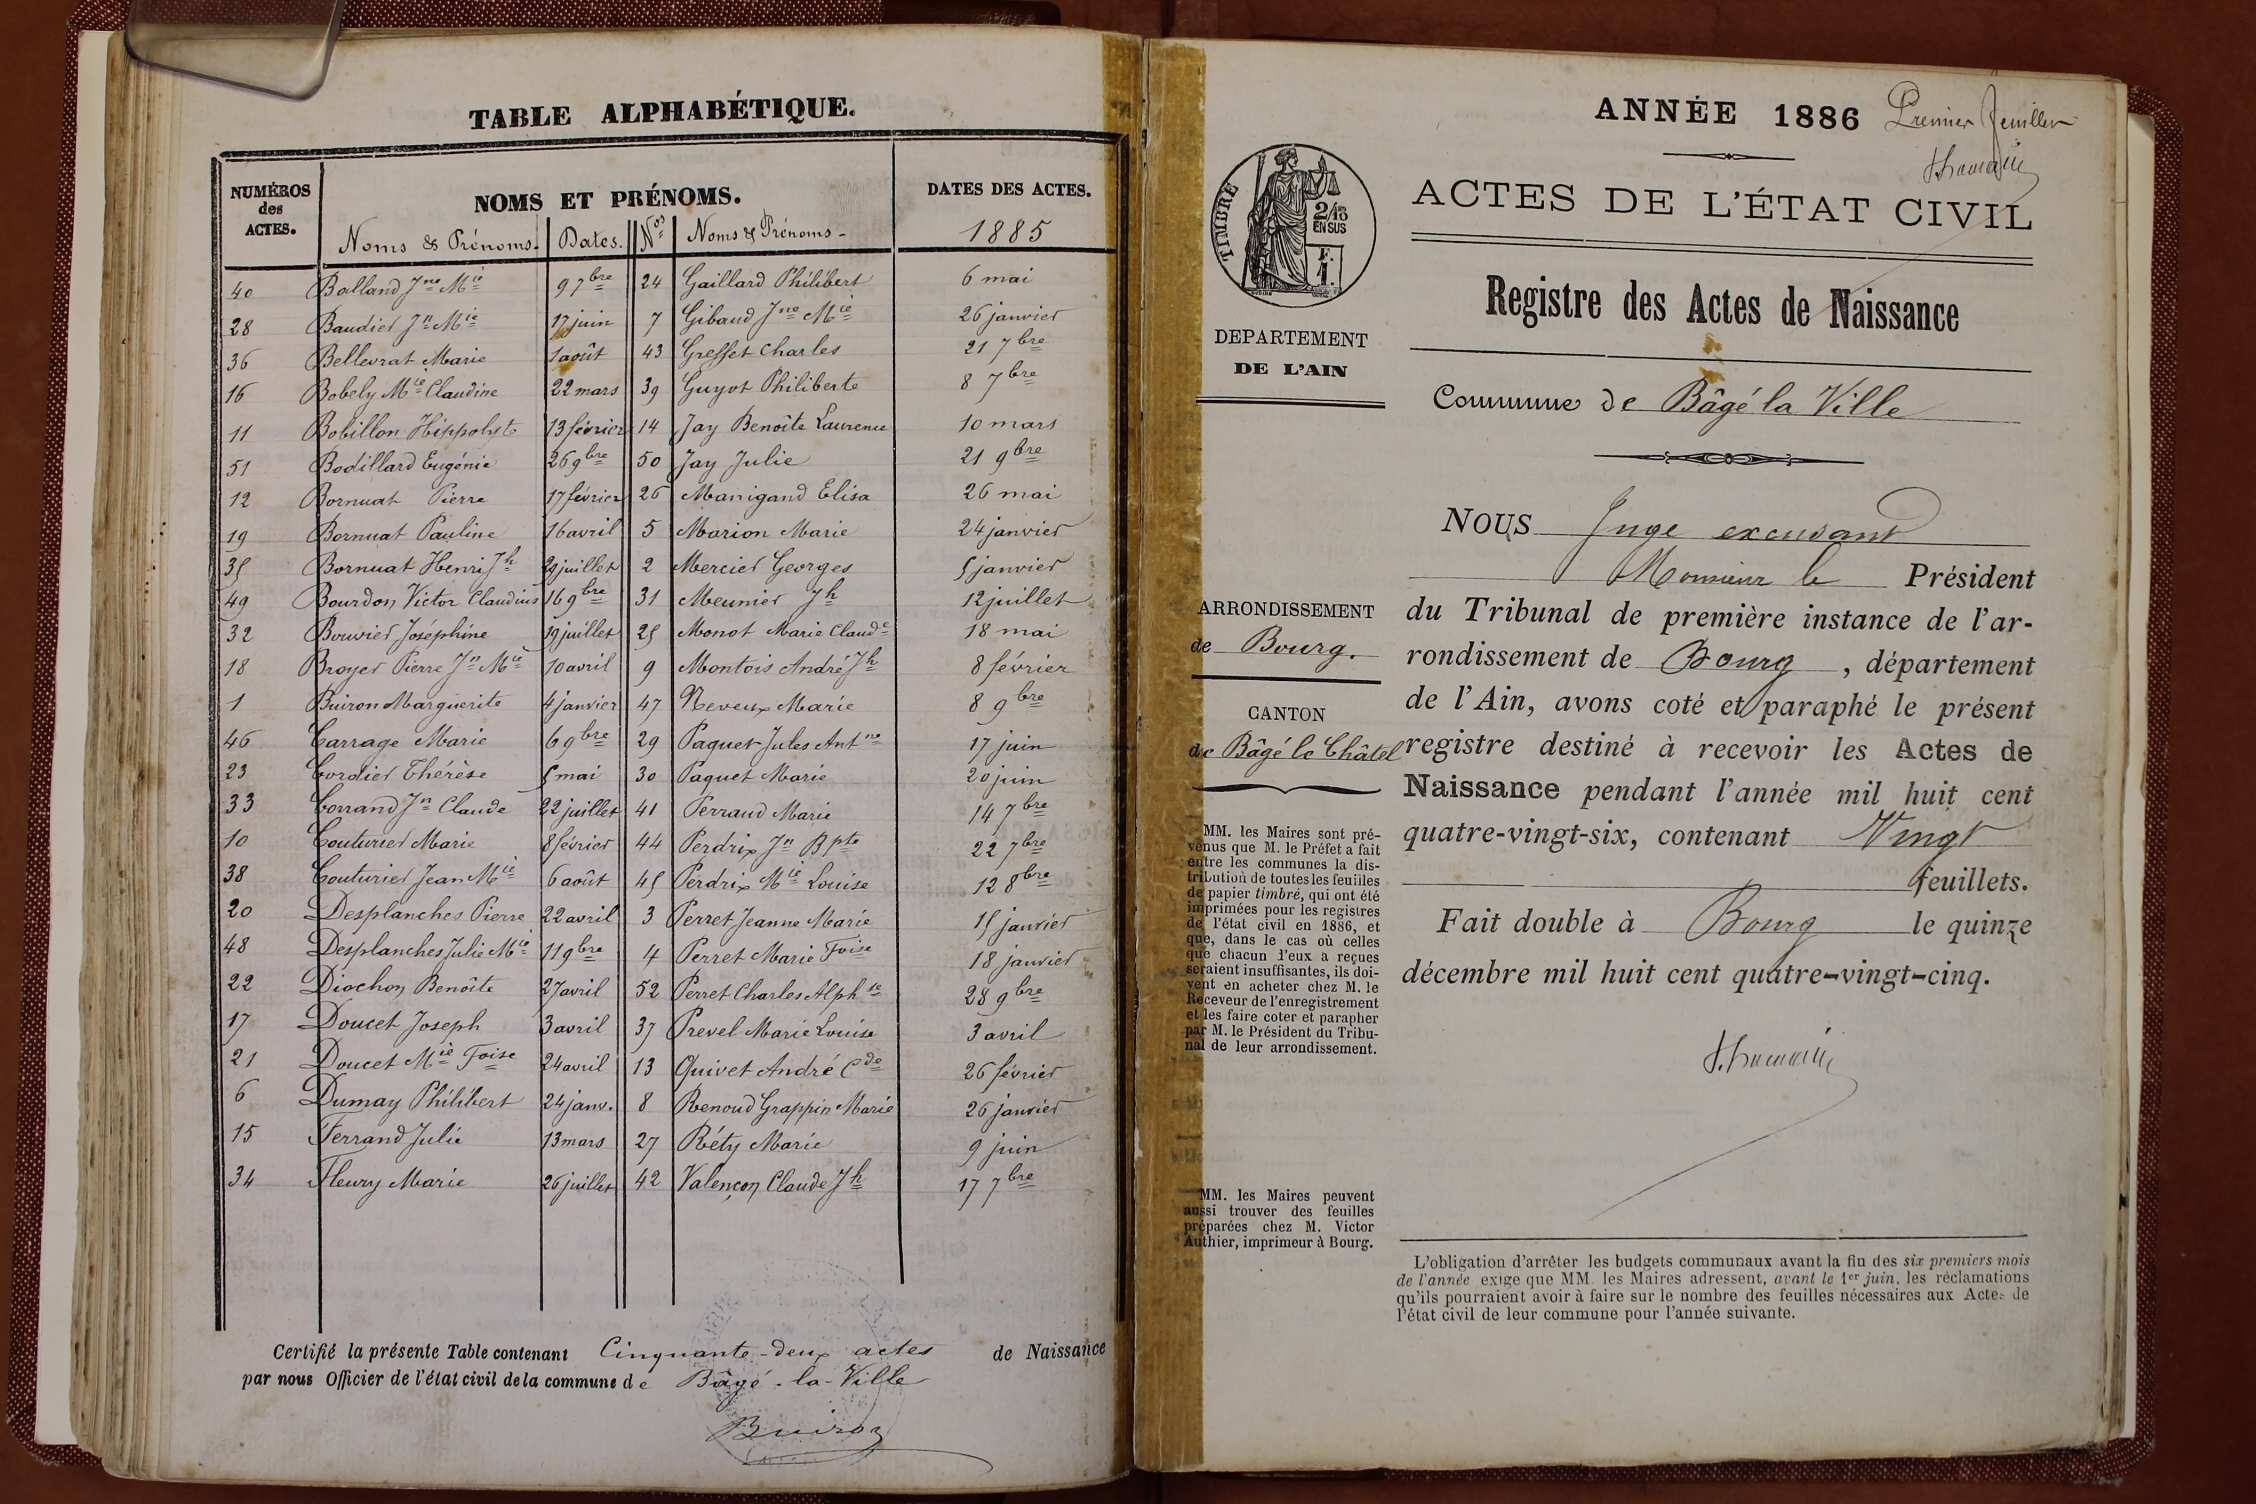 TABLE ALPHABÉTIQUE.
NUMÉROS des ACTES.
NOMS ET PRÉNOMS.
DATES DES ACTES.
Noms & Prénoms. Dates. Nos Noms & Prénoms 1885
40 Balland Jne Mie 9 7bre 24 Gaillard Philibert 6 mai
28 Baudier Jn Mie 17 juin 7 Gibaud Jne Mie 26 janvier
36 Bellevrat Marie 1 août 43 Greffet Charles 21 7bre
16 Bobely Mie Claudine 22 mars 39 Guyot Philiberte 8 7bre
11 Bobillon Hippolyte 13 février 14 Jay Benoîte Laurence 10 mars
51 Bodillard Eugénie 26 9bre 50 Jay Julie 21 9bre
12 Bornuat Pierre 17 février 26 Manigand Elisa 26 mai
19 Bornuat Pauline 16 avril 5 Marion Marie 24 janvier
35 Bornuat Henri Jh 29 juillet 2 Mercier Georges 5 janvier
49 Bourdon Victor Claudius 16 9bre 31 Meunier Jh 12 juillet
32 Bouvier Joséphine 19 juillet 25 Monot Marie Claude 18 mai
18 Broyer Pierre Jn Mie 10 avril 9 Montois André Jh 8 février
1 Buiron Marguerite 4 janvier 47 Neveux Marie 8 9bre
46 Carrage Marie 6 9bre 29 Paquet Jules Antne 17 juin
23 Cordier Thérèse 5 mai 30 Paquet Marie 20 juin
33 Corrand Jn Claude 22 juillet 41 Perraud Marie 14 7bre
10 Couturier Marie 8 février 44 Perdrix Jn Bpte 22 7bre
38 Couturier Jean Mie 6 août 45 Perdrix Mie Louise 12 8bre
20 Desplanches Pierre 22 avril 3 Perret Jeanne Marie 15 janvier
48 Desplanches Julie Mie 11 9bre 4 Perret Marie Foise 18 janvier
22 Diochon Benoîte 27 avril 52 Perret Charles Alphse 28 9bre
17 Doucet Joseph 3 avril 37 Prevel Marie Louise 3 avril
21 Doucet Mie Foise 24 avril 13 Quivet André Cde 26 février
6 Dumay Philibert 24 janv. 8 Renoud Grappin Marie 26 janvier
15 Ferrand Julie 13 mars 27 Réty Marie 9 juin
34 Fleury Marie 26 juillet 42 Valençon Claude Jh 17 7bre
Certifié la présente Table contenant Cinquante-deux actes de Naissance
par nous Officier de l'état civil de la commune de Bâgé-la-Ville
Buiron
ANNÉE 1886 Premier feuillet
ACTES DE L'ÉTAT CIVIL
TIMBRE
2/10 EN SUS
F. 1.
Registre des Actes de Naissance
DEPARTEMENT
DE L'AIN
Commune de Bâgé la Ville
NOUS Juge excusant
Monsieur le Président
du Tribunal de première instance de l'ar-
rondissement de Bourg, département
de l'Ain, avons coté et paraphé le présent
registre destiné à recevoir les Actes de
Naissance pendant l'année mil huit cent
quatre-vingt-six, contenant Vingt
feuillets.
Fait double à Bourg le quinze
décembre mil huit cent quatre-vingt-cinq.
ARRONDISSEMENT
de Bourg.
CANTON
de Bâgé le Châtel
MM. les Maires sont pré-
venus que M. le Préfet a fait
entre les communes la dis-
tribution de toutes les feuilles
de papier timbré, qui ont été
imprimées pour les registres
de l'état civil en 1886, et
que, dans le cas où celles
que chacun d'eux a reçues
seraient insuffisantes, ils doi-
vent en acheter chez M. le
Receveur de l'enregistrement
et les faire coter et parapher
par M. le Président du Tribu-
nal de leur arrondissement.
MM. les Maires peuvent
aussi trouver des feuilles
préparées chez M. Victor
Authier, imprimeur à Bourg.
L'obligation d'arrêter les budgets communaux avant la fin des six premiers mois
de l'année exige que MM. les Maires adressent, avant le 1er juin, les réclamations
qu'ils pourraient avoir à faire sur le nombre des feuilles nécessaires aux Actes de
l'état civil de leur commune pour l'année suivante.